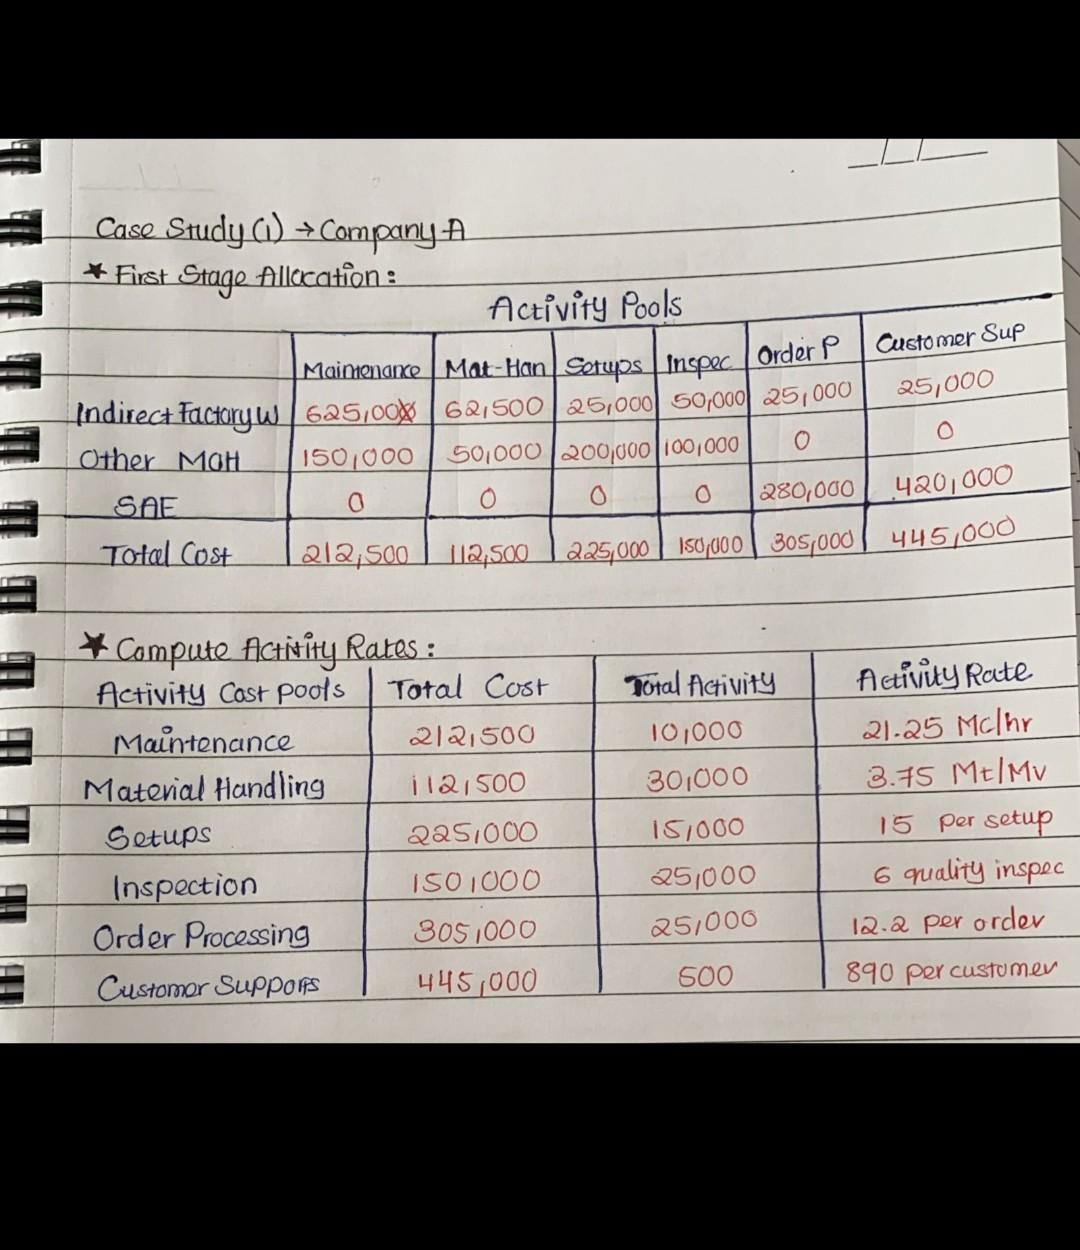 Case Study (1) → Company A
★ First Stage Allocation :
Activity Pools
Maintenance Mat-Han Setups Inspec Order P Customer Sup
Indirect Factory W 625,00 62,500 25,000 50,000 25,000 25,000
Other MOH 150,000 50,000 200,000 100,000 0 0
SAE 0 0 0 0 280,000 420,000
Total Cost 212,500 112,500 225,000 150,000 305,000 445,000
★ Compute Activity Rates :
Activity Cost Pools Total Cost Total Activity Activity Rate
Maintenance 212,500 10,000 21.25 Mc/hr
Material Handling 112,500 30,000 3.75 Mt/Mv
Setups 225,000 15,000 15 per setup
Inspection 150,000 25,000 6 quality inspec
Order Processing 305,000 25,000 12.2 per order
Customer Supports 445,000 500 890 per customer